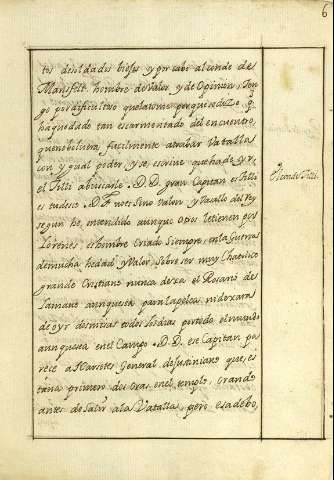 6
tos desoldados biejos y por cabo al conde de
Mansfelt hombre de valor y de Opinion, Ten
go por dificultoso que la tome porque se dize q.
ha quedado tan escarmentado del encuentro
que no bolvera facilmente a trabar Vatalla
con ygual poder, y se escrive que ha de yr
el Tilli a buscarle. D. D. gran Capitan es Tilli
es tudesco. D. F. no es sino Valon y Vasallo del Rey
segun he entendido aunque otros le tienen por
Lorenes es hombre Criado Siempre en la Guerra
de mucha hedad y Valor sobre ser muy Chatolico
grande Cristiano nunca dexa el Rosario de
la mano aunque sea para la pelea ni dexara
de oyr dos misas todos los dias por todo el mundo
aunque sea en el Campo. D. D. ese Capitan pa
rece a Narsetes General de Justiniano que, es
taria primero dos oras en el templo, orando
antes de Salir a la Vatalla, pero esa debo,
El conde Tilli.